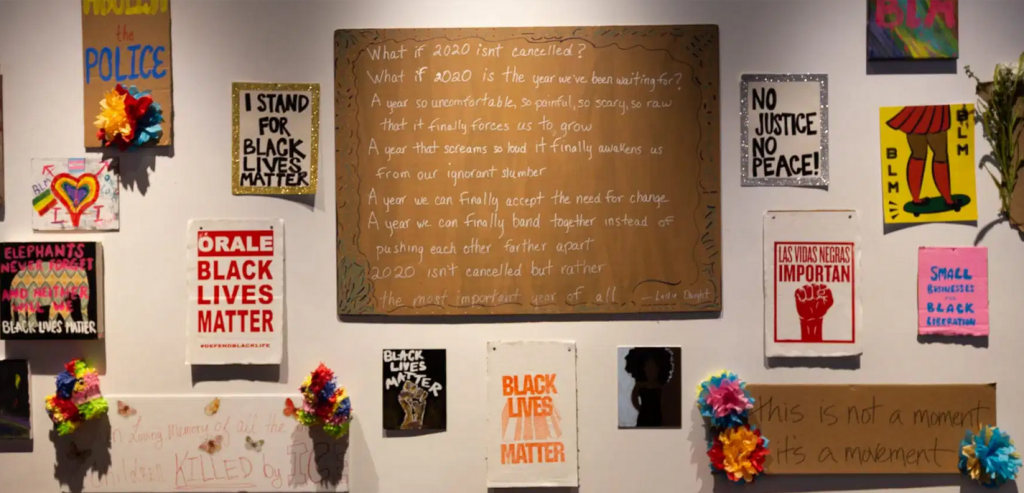 ABOLISH
the
POLICE
I STAND
FOR
BLACK
LIVES
MATTER
BLM
ELEPHANTS
NEVER FORGET
AND NEITHER
WILL WE
BLACK LIVES MATTER
ÓRALE
BLACK
LIVES
MATTER
#DEFENDBLACKLIFE
What if 2020 isnt cancelled?
What if 2020 is the year we've been waiting for?
A year so uncomfortable, so painful, so scary, so raw
that it finally forces us to grow
A year that screams so loud it finally awakens us
from our ignorant slumber
A year we can finally accept the need for change
A year we can finally band together instead of
pushing each other further apart
2020 isn't cancelled but rather
the most important year of all
— Leslie Dwight
NO
JUSTICE
NO
PEACE!
BLM
BLM
BLM
LAS VIDAS NEGRAS
IMPORTAN
SMALL
BUSINESSES
FOR
BLACK
LIBERATION
In Loving memory of all the
children KILLED by ICE
BLACK
LIVES
MATTER
BLACK
LIVES
MATTER
this is not a moment
it's a movement